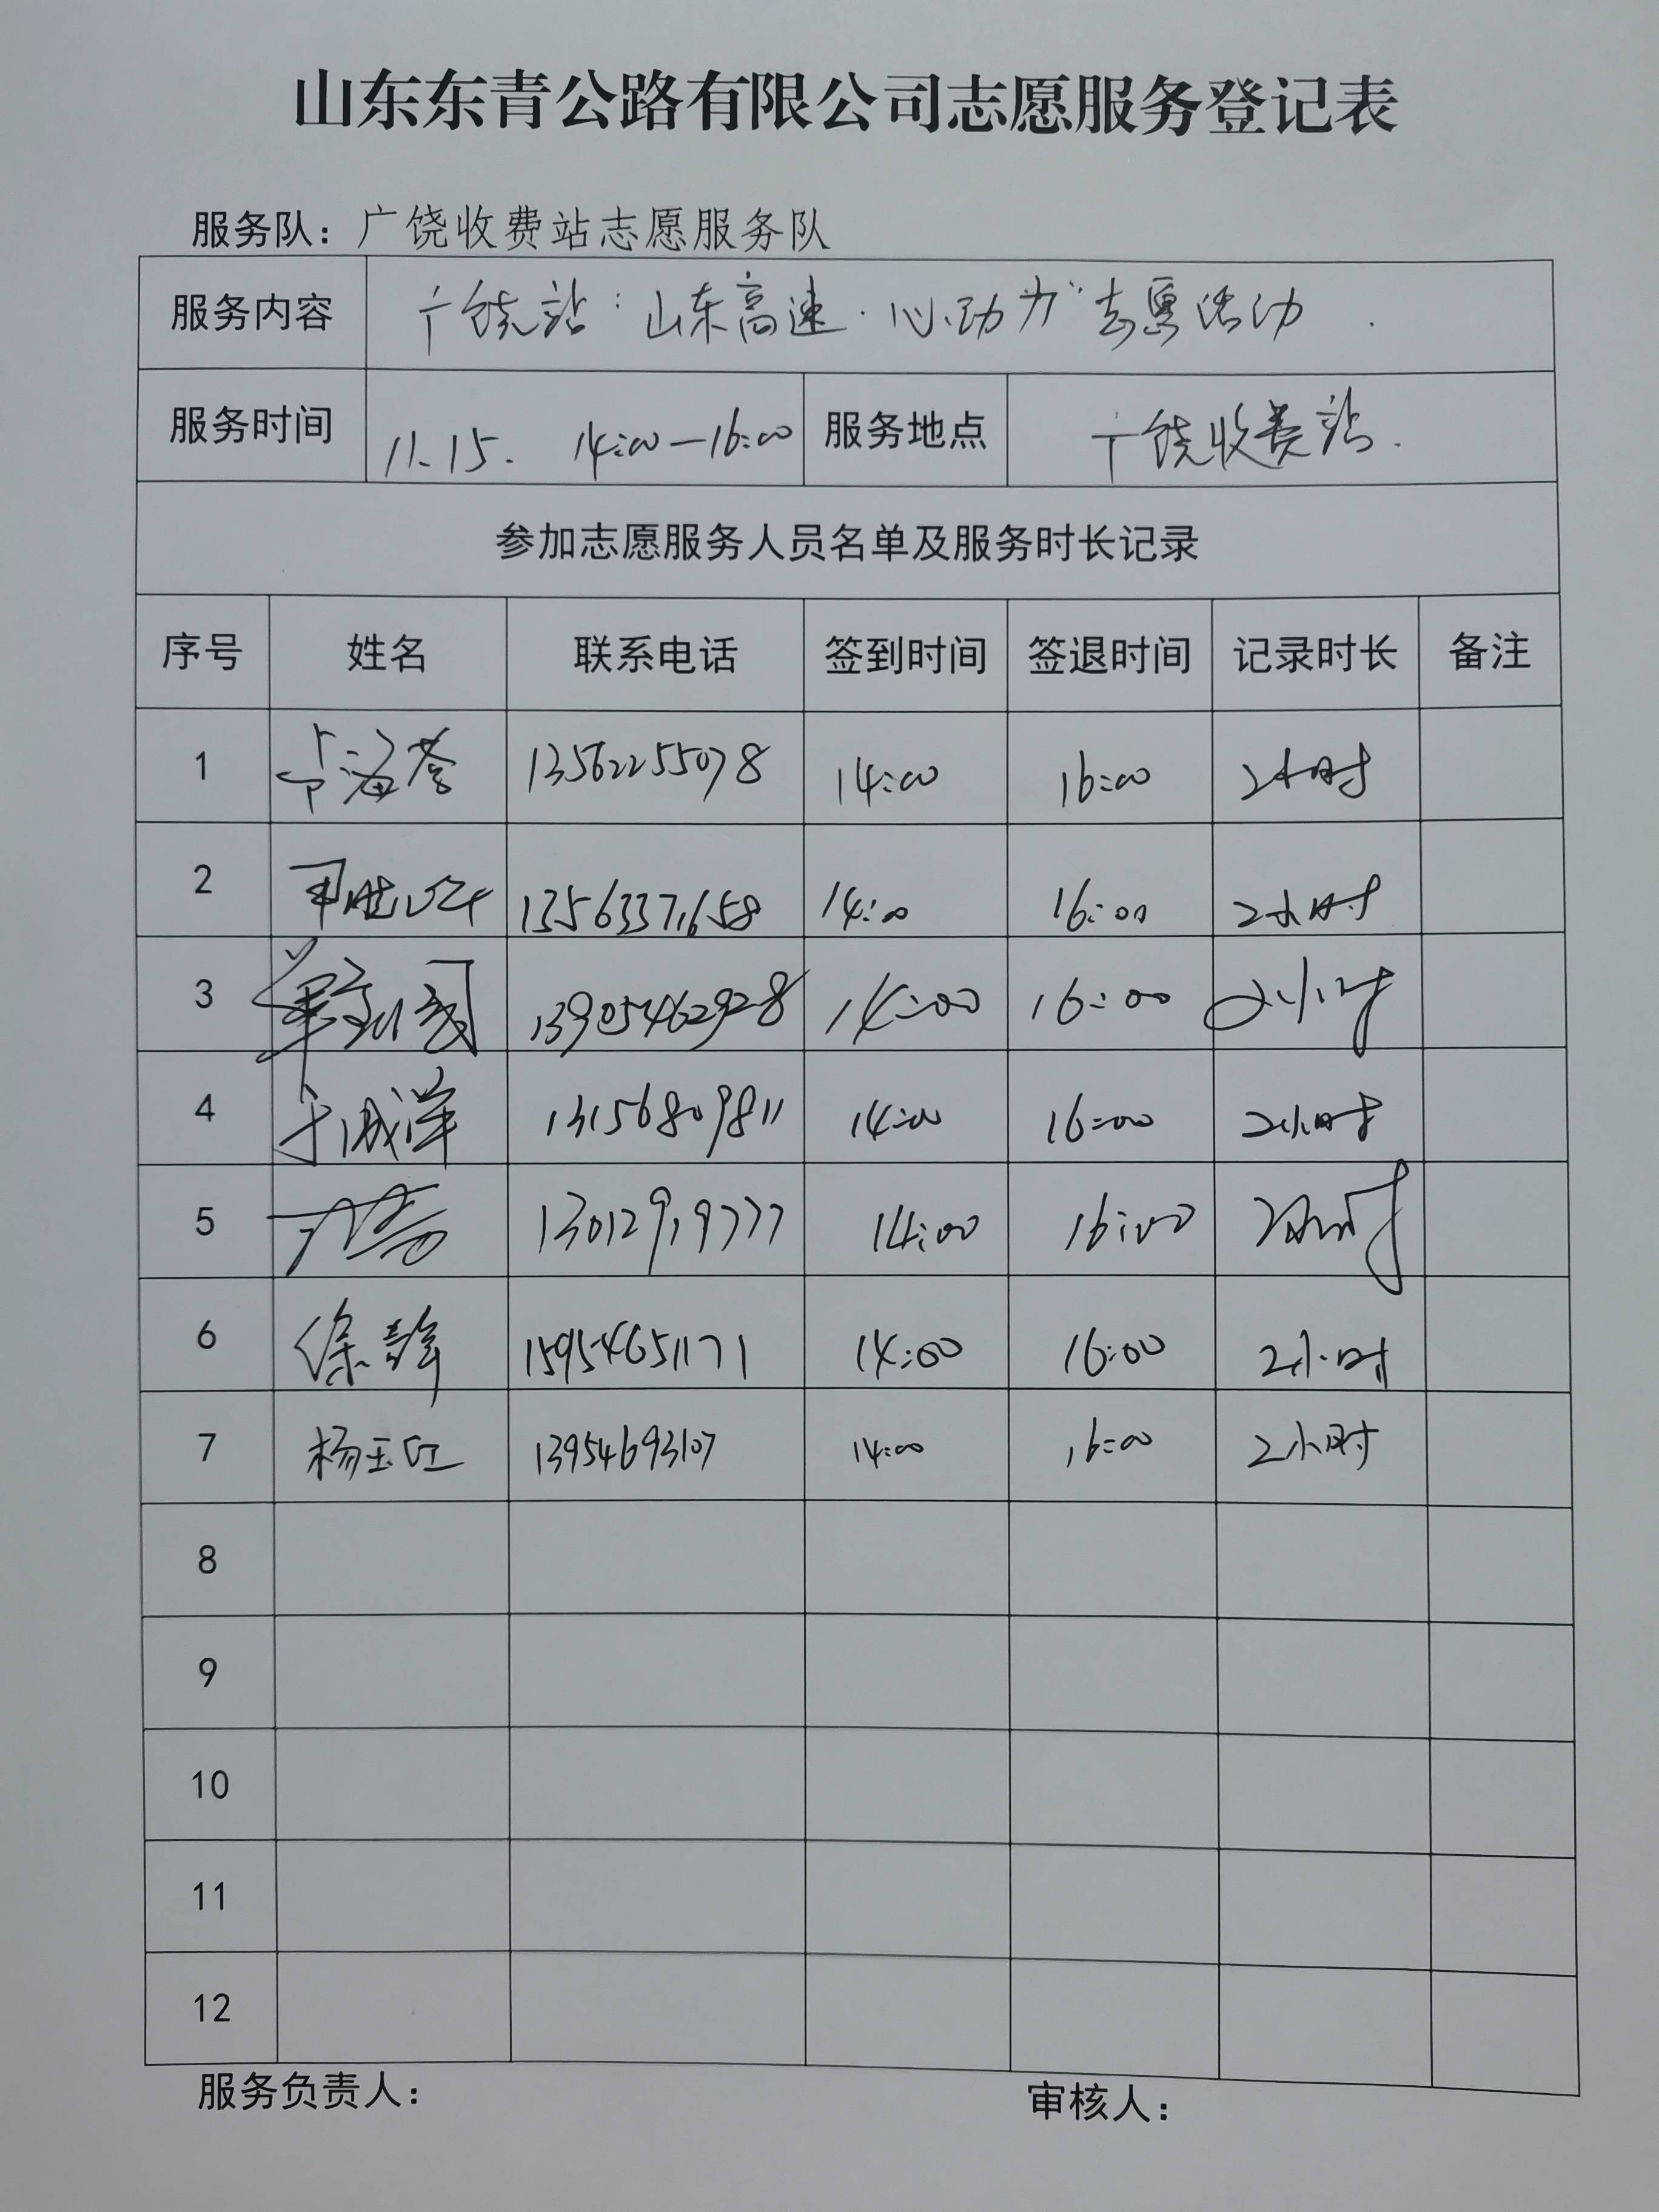 山东东青公路有限公司志愿服务登记表
服务队：广饶收费站志愿服务队
服务内容 广饶站“山东高速·心动力”志愿活动
服务时间 11.15. 14:00—16:00 服务地点 广饶收费站.
参加志愿服务人员名单及服务时长记录
序号 姓名 联系电话 签到时间 签退时间 记录时长 备注
1 13562255078 14:00 16:00 2小时
2 13563371658 14:00 16:00 2小时
3 13905462928 14:00 16:00 2小时
4 于成洋 13156809811 14:00 16:00 2小时
5 13012919777 14:00 16:00 2小时
6 徐 15954651171 14:00 16:00 2小时
7 杨玉红 13954693107 14:00 16:00 2小时
8
9
10
11
12
服务负责人： 审核人：